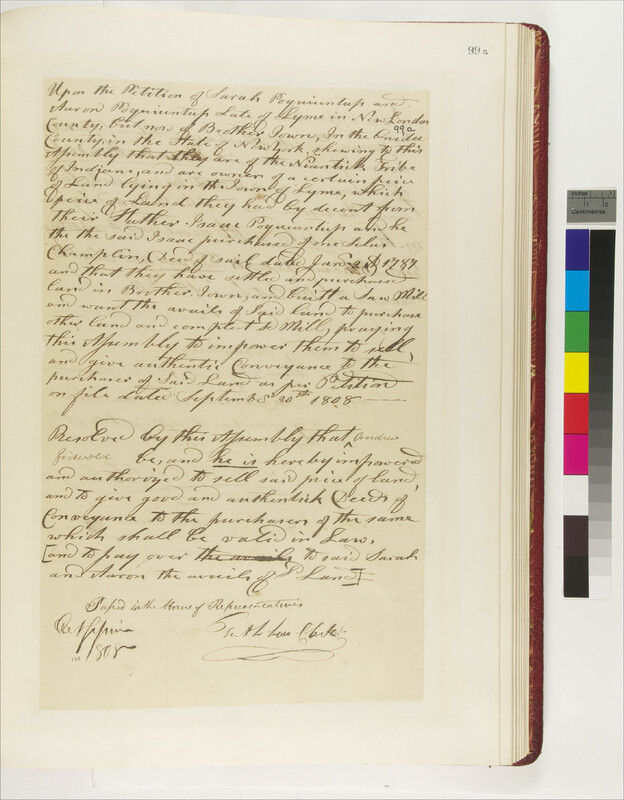 99a
Upon the Petition of Sarah Poquiuntup and
Aaron Poquiuntup Late of Lyme in New London
99a
County, but now of Brother Town, In the Onida
County, in the State of New York shewing to this
Assembly that they are of the Niantick Tribe
of Indians, and are owner of a certain peice
of Land lying in the Town of Lyme, which
peice of Land they had by decent from
their Father Isaac Poquiuntup and he
the the said Isaac purchased of one Silas
Champlin, Deed of sail dated Jan 1787
and that they have settled and purchased
land in Brother Town, and built a Saw Mill
and want the avails of Said land to purchase
other land and compleat sd Mill, praying
this Assembly to impower them to sell,
and give authentic Conveyance to the
purchaser of Said Land as per Petition
on file dated Septembr 30th 1808
Resolved by this Assembly that Andrew
Griswold be, and he is hereby impowered
and authorized to sell said price of land,
and to give good and authentick Deeds of
Conveyance to the purchasers of the same
which shall be valid in Law,
[and to pay over the avails to said Sarah
and Aaron the avails of sd Land]
Passed in the House of Representatives
Oct Session
1808
Clerk
Centimetres